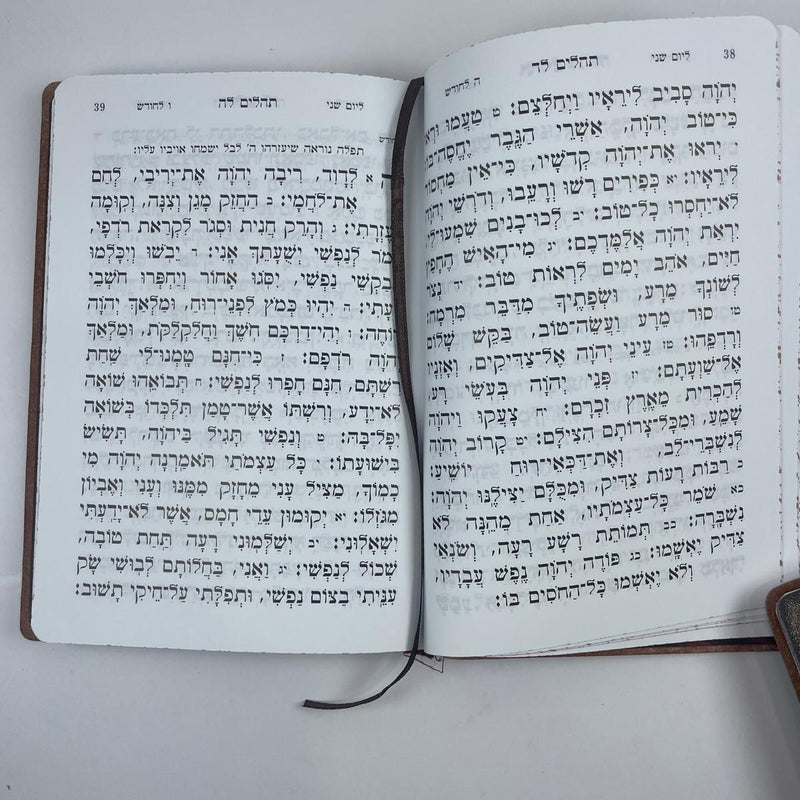 38 ליום שני תהלים לד ה לחודש
יְהֹוָה סָבִיב לִירֵאָיו וַיְחַלְּצֵם: ט טַעֲמוּ וּרְאוּ
כִּי־טוֹב יְהֹוָה, אַשְׁרֵי הַגֶּבֶר יֶחֱסֶה־בּוֹ:
יְראוּ אֶת־יְהֹוָה קְדֹשָׁיו, כִּי־אֵין מַחְסוֹר
לִירֵאָיו: יא כְּפִירִים רָשׁוּ וְרָעֵבוּ, וְדֹרְשֵׁי יְהֹוָה
לֹא־יַחְסְרוּ כָל־טוֹב: יב לְכוּ־בָנִים שִׁמְעוּ־לִי,
יִרְאַת יְהֹוָה אֲלַמֶּדְכֶם: יג מִי־הָאִישׁ הֶחָפֵץ
חַיִּים, אֹהֵב יָמִים לִרְאוֹת טוֹב: יד נְצֹר
לְשׁוֹנְךָ מֵרָע, וּשְׂפָתֶיךָ מִדַּבֵּר מִרְמָה:
טו סוּר מֵרָע וַעֲשֵׂה־טוֹב, בַּקֵּשׁ שָׁלוֹם
וְרָדְפֵהוּ: טז עֵינֵי יְהֹוָה אֶל־צַדִּיקִים, וְאָזְנָיו
אֶל־שַׁוְעָתָם: יז פְּנֵי יְהֹוָה בְּעֹשֵׂי רָע,
לְהַכְרִית מֵאֶרֶץ זִכְרָם: יח צָעֲקוּ וַיהֹוָה
שָׁמֵעַ, וּמִכָּל־צָרוֹתָם הִצִּילָם: יט קָרוֹב יְהֹוָה
לְנִשְׁבְּרֵי־לֵב, וְאֶת־דַּכְּאֵי־רוּחַ יוֹשִׁיעַ:
כ רַבּוֹת רָעוֹת צַדִּיק, וּמִכֻּלָּם יַצִּילֶנּוּ יְהֹוָה:
כא שֹׁמֵר כָּל־עַצְמֹתָיו, אַחַת מֵהֵנָּה לֹא
נִשְׁבָּרָה: כב תְּמוֹתֵת רָשָׁע רָעָה, וְשֹׂנְאֵי
צַדִּיק יֶאְשָׁמוּ: כג פּוֹדֶה יְהֹוָה נֶפֶשׁ עֲבָדָיו,
וְלֹא יֶאְשְׁמוּ כָּל־הַחֹסִים בּוֹ:
ליום שני תהלים לה ו לחודש 39
תפלה נוראה שיעזרהו ה' לבל ישמחו אויביו עליו:
א לְדָוִד, רִיבָה יְהֹוָה אֶת־יְרִיבַי, לְחַם
אֶת־לֹחֲמָי: ב הַחֲזֵק מָגֵן וְצִנָּה, וְקוּמָה
בְּעֶזְרָתִי: ג וְהָרֵק חֲנִית וּסְגֹר לִקְרַאת רֹדְפָי,
אֱמֹר לְנַפְשִׁי יְשֻׁעָתֵךְ אָנִי: ד יֵבֹשׁוּ וְיִכָּלְמוּ
מְבַקְשֵׁי נַפְשִׁי, יִסֹּגוּ אָחוֹר וְיַחְפְּרוּ חֹשְׁבֵי
רָעָתִי: ה יִהְיוּ כְּמֹץ לִפְנֵי־רוּחַ, וּמַלְאַךְ יְהֹוָה
דּוֹחֶה: ו יְהִי־דַרְכָּם חֹשֶׁךְ וַחֲלַקְלַקֹּת, וּמַלְאַךְ
יְהֹוָה רֹדְפָם: ז כִּי־חִנָּם טָמְנוּ־לִי שַׁחַת
רִשְׁתָּם, חִנָּם חָפְרוּ לְנַפְשִׁי: ח תְּבוֹאֵהוּ שׁוֹאָה
לֹא־יֵדָע, וְרִשְׁתּוֹ אֲשֶׁר־טָמַן תִּלְכְּדוֹ בְּשׁוֹאָה
יִפָּל־בָּהּ: ט וְנַפְשִׁי תָּגִיל בַּיהֹוָה, תָּשִׂישׂ
בִּישׁוּעָתוֹ: י כָּל עַצְמֹתַי תֹּאמַרְנָה יְהֹוָה מִי
כָמוֹךָ, מַצִּיל עָנִי מֵחָזָק מִמֶּנּוּ וְעָנִי וְאֶבְיוֹן
מִגֹּזְלוֹ: יא יְקוּמוּן עֵדֵי חָמָס, אֲשֶׁר לֹא־יָדַעְתִּי
יִשְׁאָלוּנִי: יב יְשַׁלְּמוּנִי רָעָה תַּחַת טוֹבָה,
שְׁכוֹל לְנַפְשִׁי: יג וַאֲנִי, בַּחֲלוֹתָם לְבוּשִׁי שָׂק
עִנֵּיתִי בַצּוֹם נַפְשִׁי, וּתְפִלָּתִי עַל־חֵיקִי תָשׁוּב: